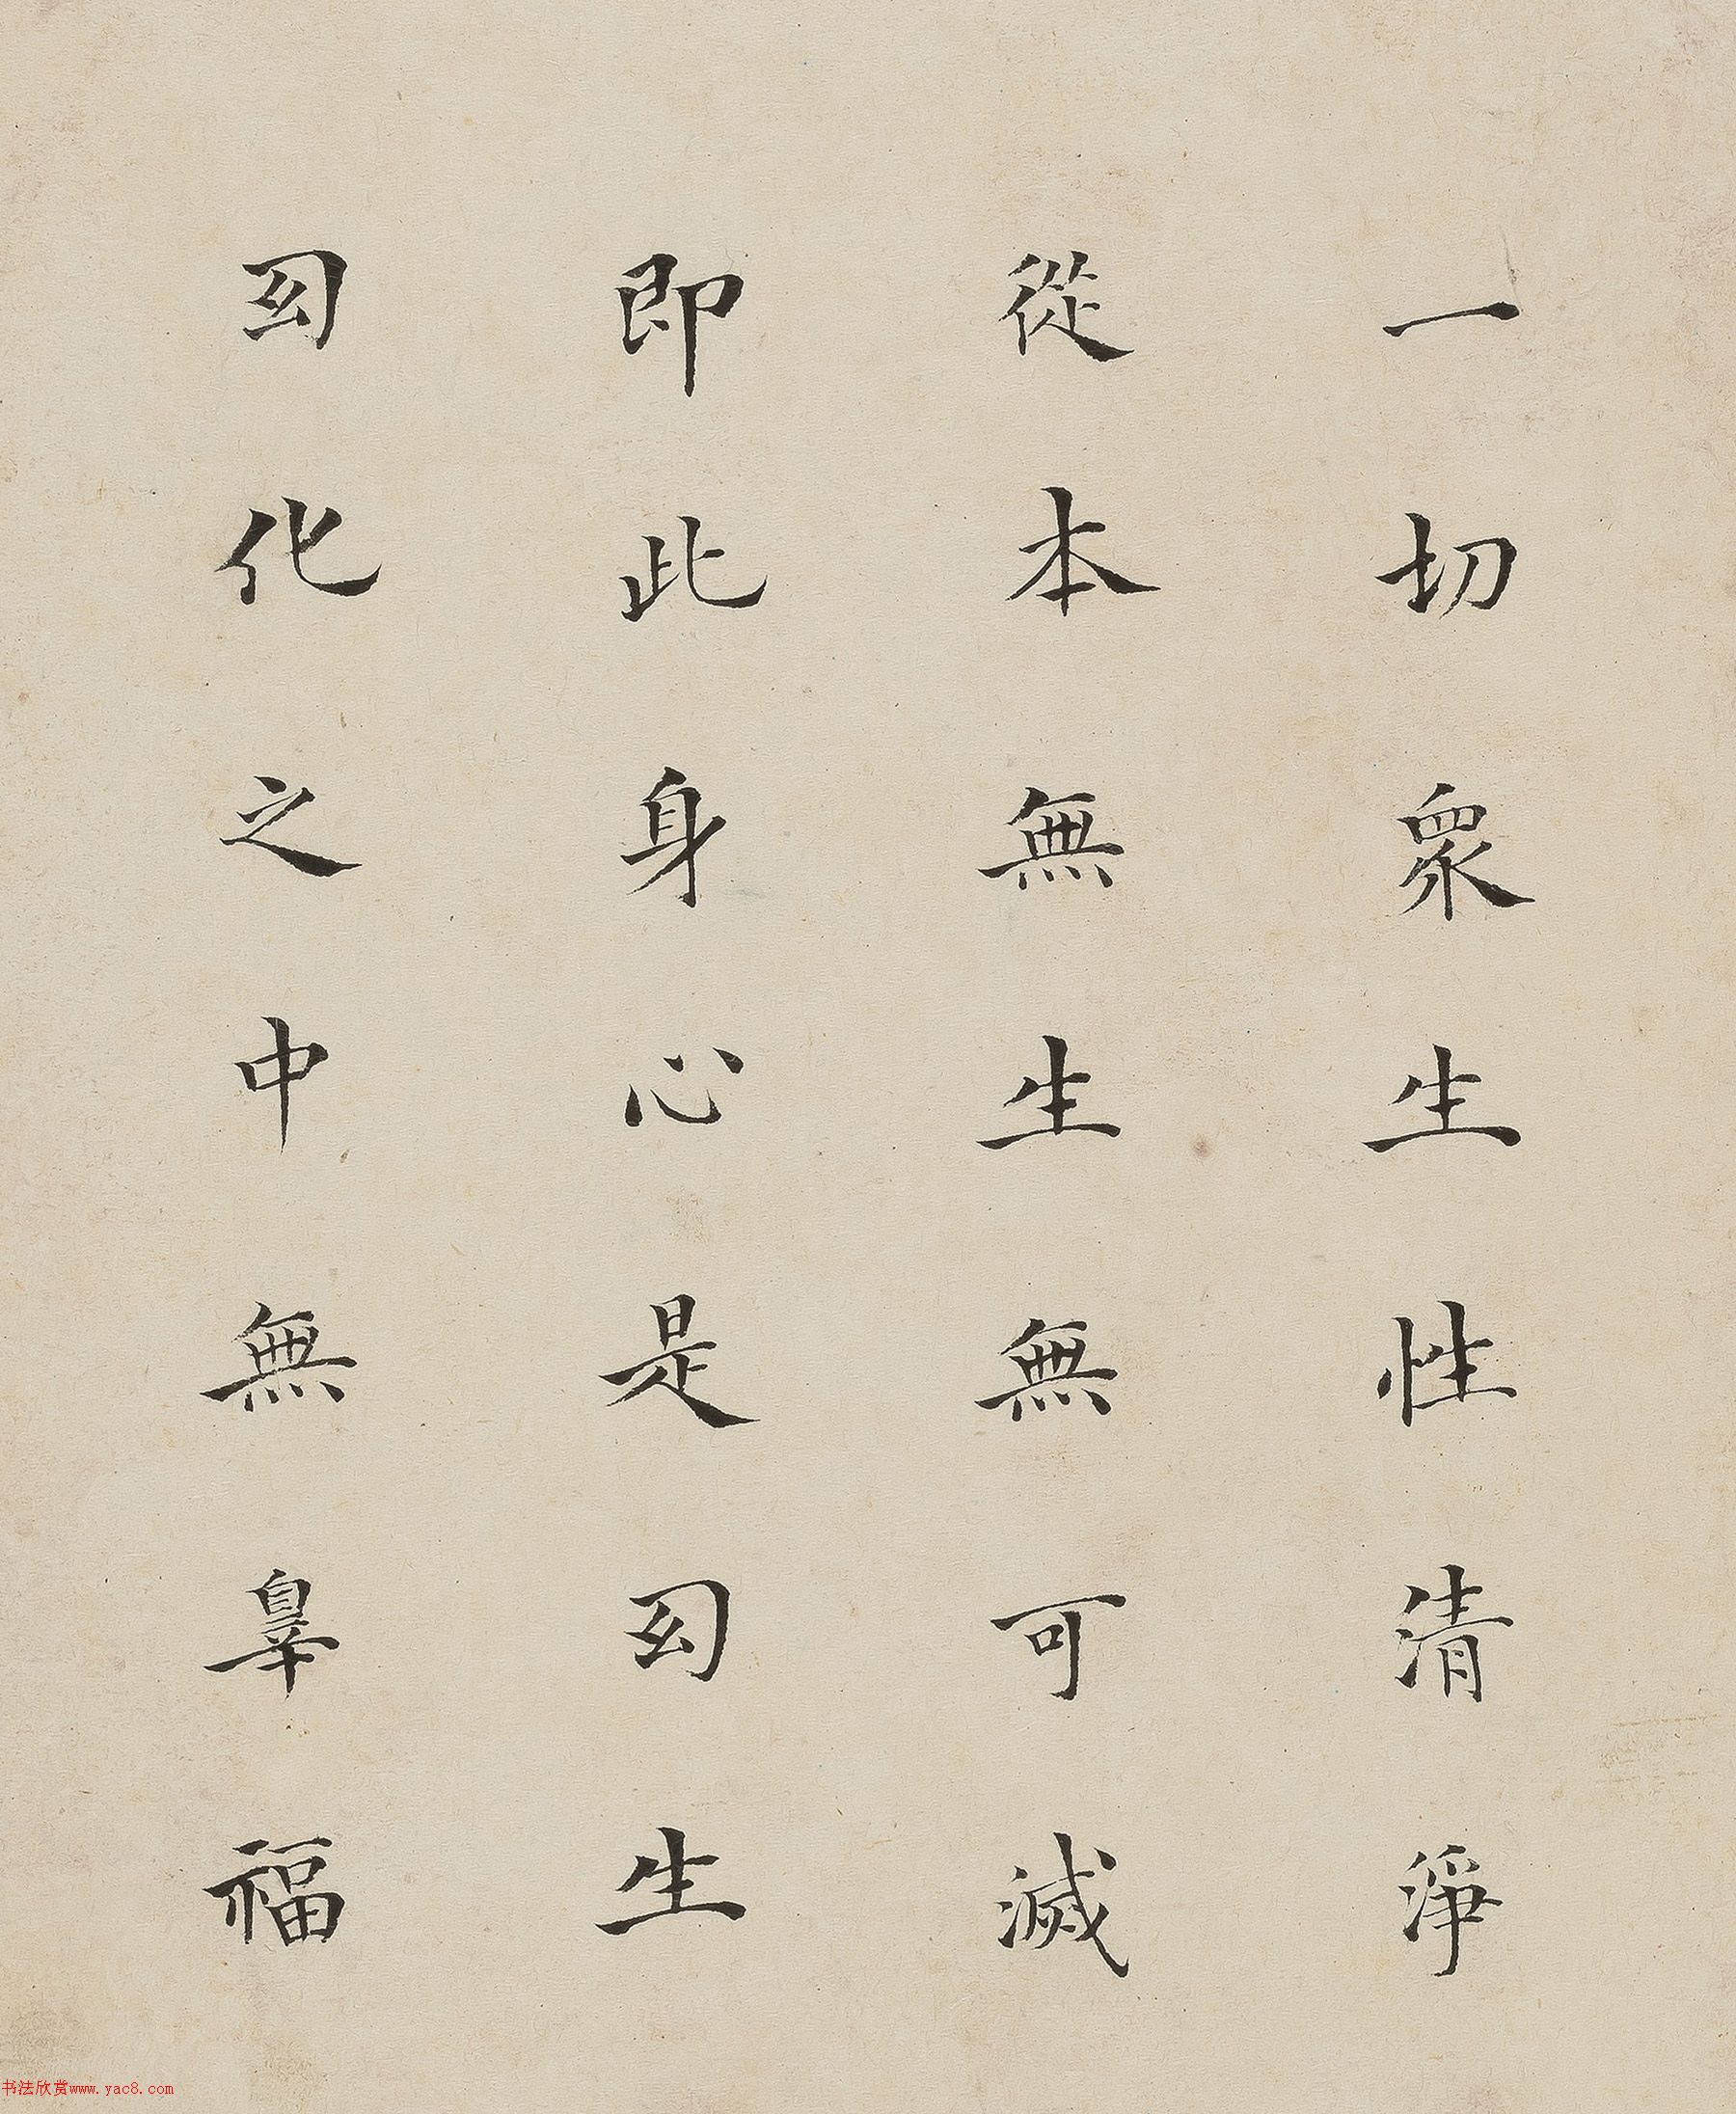 一切眾生性清淨
從本無生無可滅
即此身心是幻生
幻化之中無辠福
书法欣赏www.yac8.com